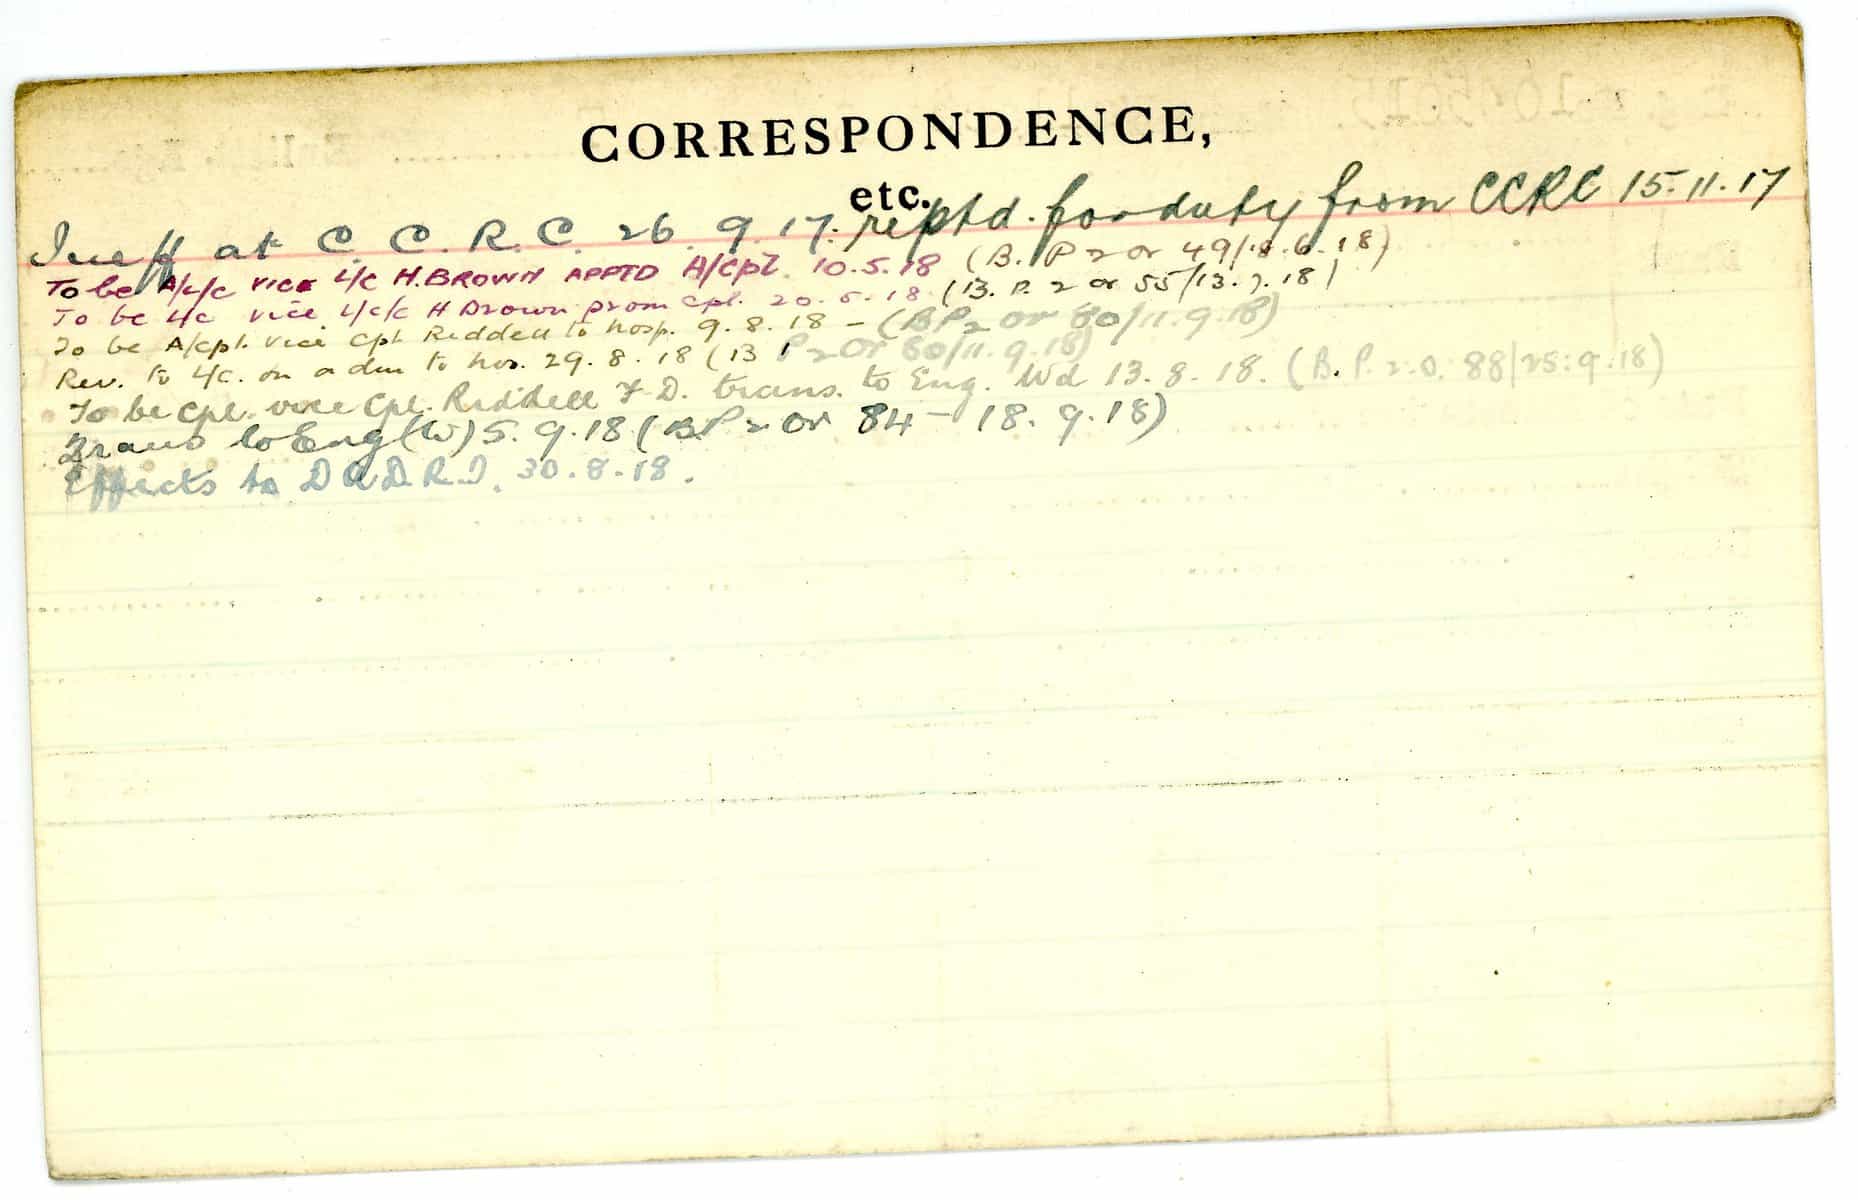 CORRESPONDENCE,
etc.
Ineff at C. C. R. C. 26. 9. 17. reptd. for duty from CCRC 15.11.17
To be A/L/C vice L/C H. BROWN APPTD A/Cpl. 10.5.18 (B. P 2 or 49/18.6.18)
To be L/C vice L/C/C H Brown prom Cpl. 20.5.18 (B. P. 2 or 55/13.7.18)
To be A/Cpl. vice Cpl Riddell to hosp. 9.8.18 - (BP2 Or 80/11.9.18)
Rev. to L/C. on adm to hos. 29.8.18 (B P 2 Or 80/11.9.18)
To be Cpl. vice Cpl. Riddell F D. trans. to Eng. Wd 13.8.18. (B. P. 2. O. 88/25.9.18)
Trans to Eng (W) 5.9.18 (BP 2 Or 84 - 18.9.18)
Effects to D A D. R. 30.8.18.